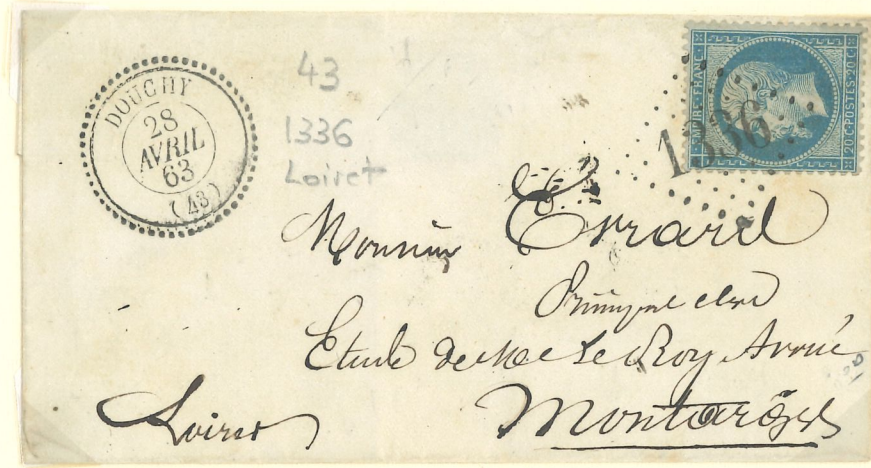 DOUCHY
28
AVRIL
63
(43)
43
1336
Loiret
EMPIRE FRANC
20 C POSTES 20 C
1336
Monsieur Evrard
Principal clerc
Etude de Me Le Roy Avoué
Montargis
Loiret